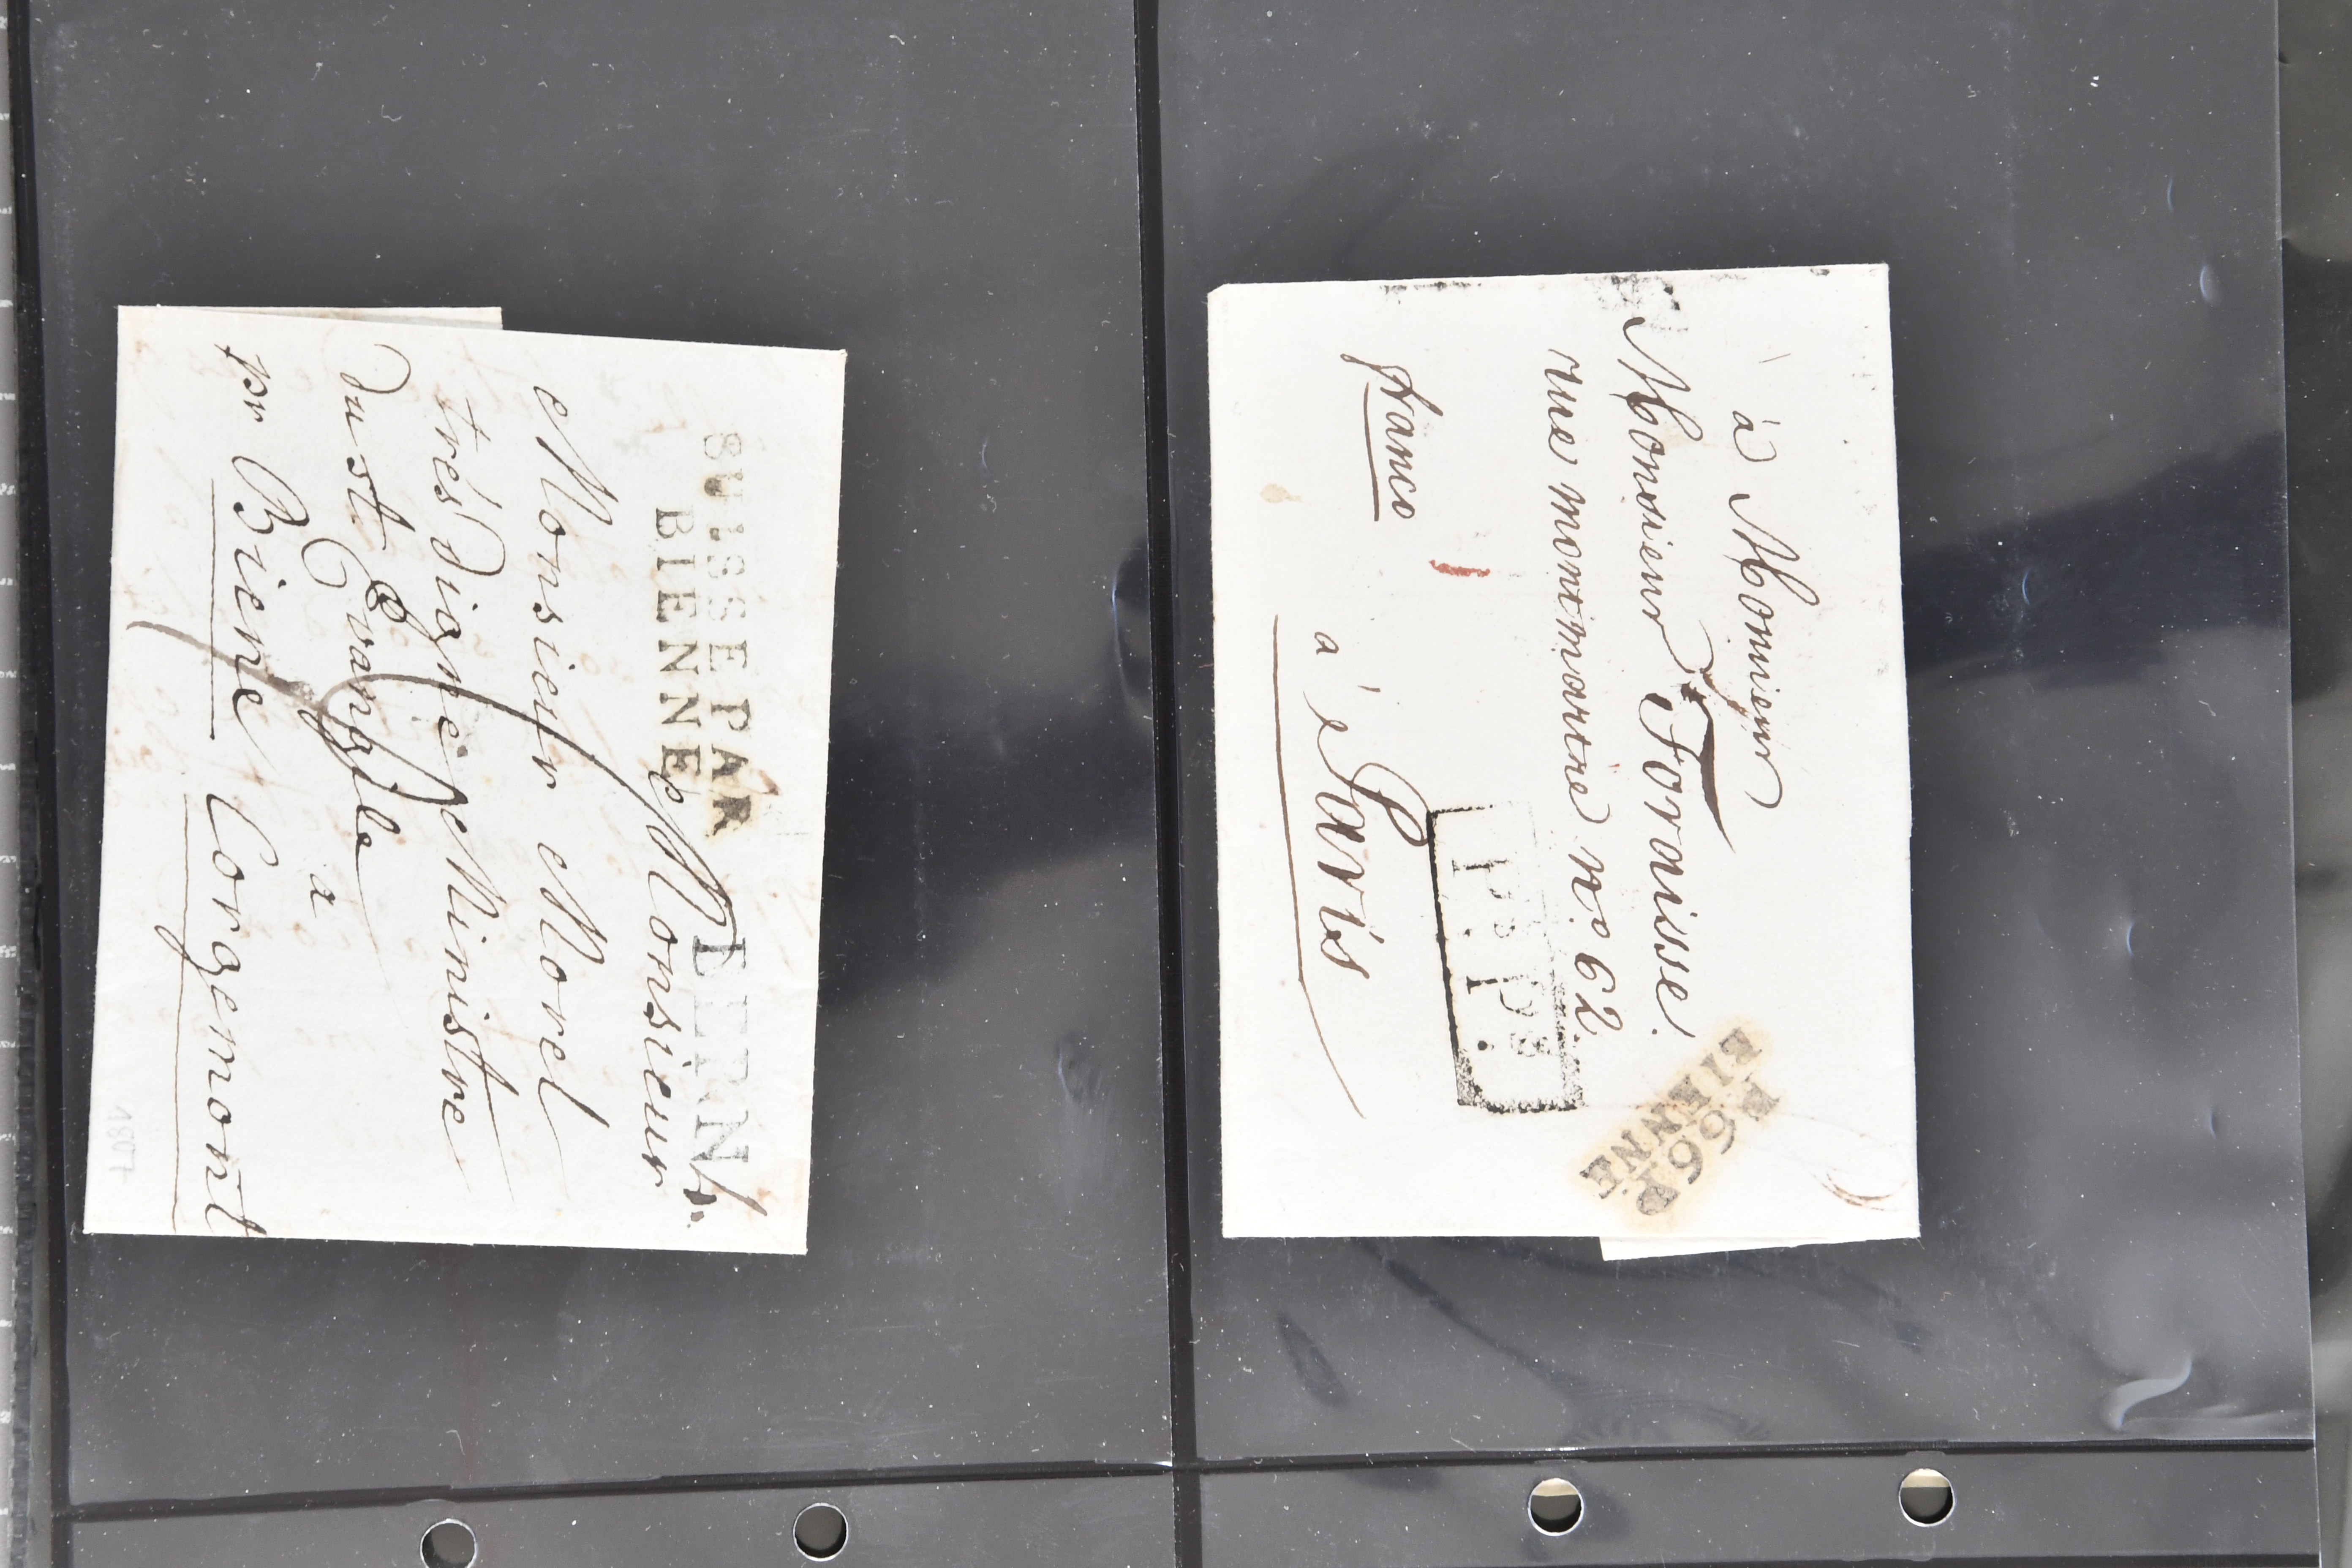 à Monsieur
Monsieur Foraisse.
rue montmartre no. 62.
P.P.
P.P.
franco
à Paris
P66P
BIENNE
SUISSE PAR
BIENNE
BERN
Monsieur
Monsieur Morel
très Digne Ministre
Du st Evangile
a
pr Biene Corgemont
1807